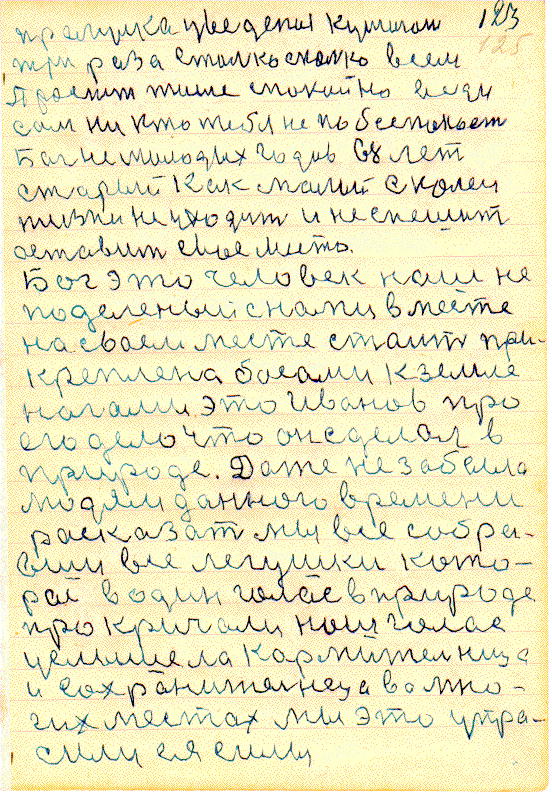 123
125
прагулка уведения купатом
три раза столкосколко всем
просит тише спокойно веди
сам ни кто тебя не побеспокоет
Бог не молодых годов 68 лет
старый как малый с колеи
жизни не уходит и не спешит
оставит свое место.
Бог это человек наш не
поделеный снами вместе
насваем месте стаит при-
креплена босами к земле
нагами это Иванов про
его дело что он сделал в
природе. Даже незабыла
людям данного времени
расказат мы все собра-
вши все легушки кото-
рай водин голас в природе
прокричали наш голас
целышела Кармителница
и сохранителнеца во мно-
гих местах мы это упра-
сили ея силы